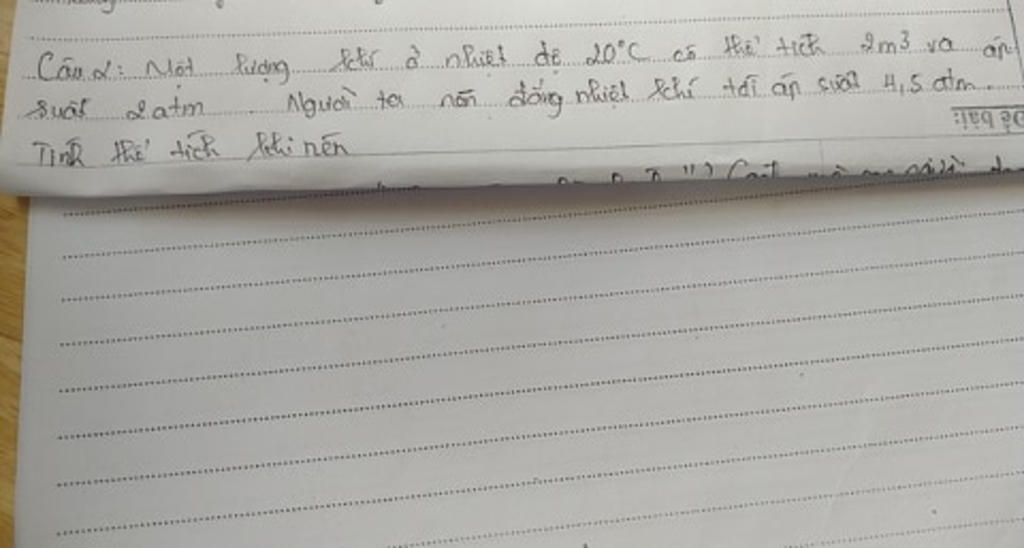 Câu 2: Một lượng khí ở nhiệt độ 20°C có thể tích 2m3 và áp
suất 2atm. Người ta nén đẳng nhiệt khí tới áp suất 4,5 atm.
Tính thể tích khí nén